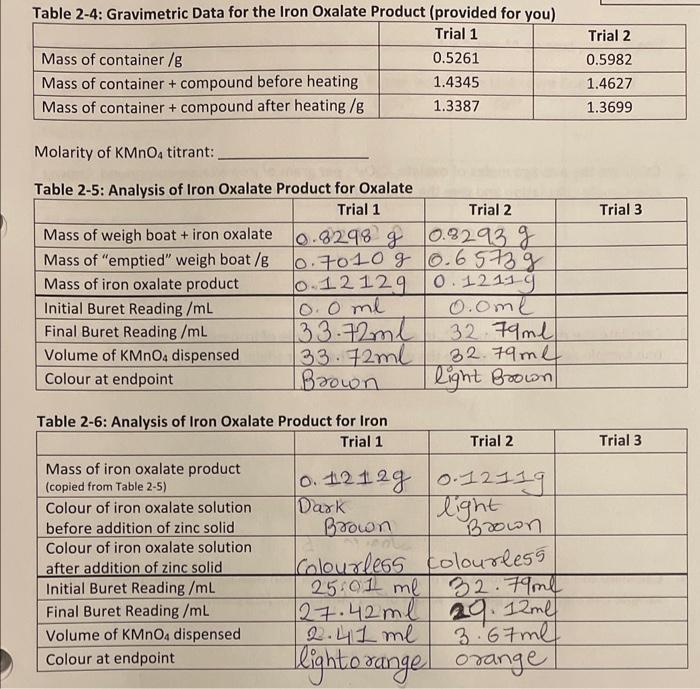 Table 2-4: Gravimetric Data for the Iron Oxalate Product (provided for you)
Trial 1 Trial 2
Mass of container /g 0.5261 0.5982
Mass of container + compound before heating 1.4345 1.4627
Mass of container + compound after heating /g 1.3387 1.3699
Molarity of KMnO₄ titrant:
Table 2-5: Analysis of Iron Oxalate Product for Oxalate
Trial 1 Trial 2 Trial 3
Mass of weigh boat + iron oxalate 0.8298 g 0.8293 g
Mass of "emptied" weigh boat /g 0.7010 g 0.6573g
Mass of iron oxalate product 0.1212g 0.1211g
Initial Buret Reading /mL 0.0 ml 0.0ml
Final Buret Reading /mL 33.72ml 32.79ml
Volume of KMnO₄ dispensed 33.72ml 32.79ml
Colour at endpoint Brown light Brown
Table 2-6: Analysis of Iron Oxalate Product for Iron
Trial 1 Trial 2 Trial 3
Mass of iron oxalate product
(copied from Table 2-5) 0.1212g 0.1211g
Colour of iron oxalate solution Dark light
before addition of zinc solid Brown Brown
Colour of iron oxalate solution
after addition of zinc solid Colourless Colourless
Initial Buret Reading /mL 25.01 ml 32.79ml
Final Buret Reading /mL 27.42ml 29.12ml
Volume of KMnO₄ dispensed 2.41 ml 3.67ml
Colour at endpoint light orange orange